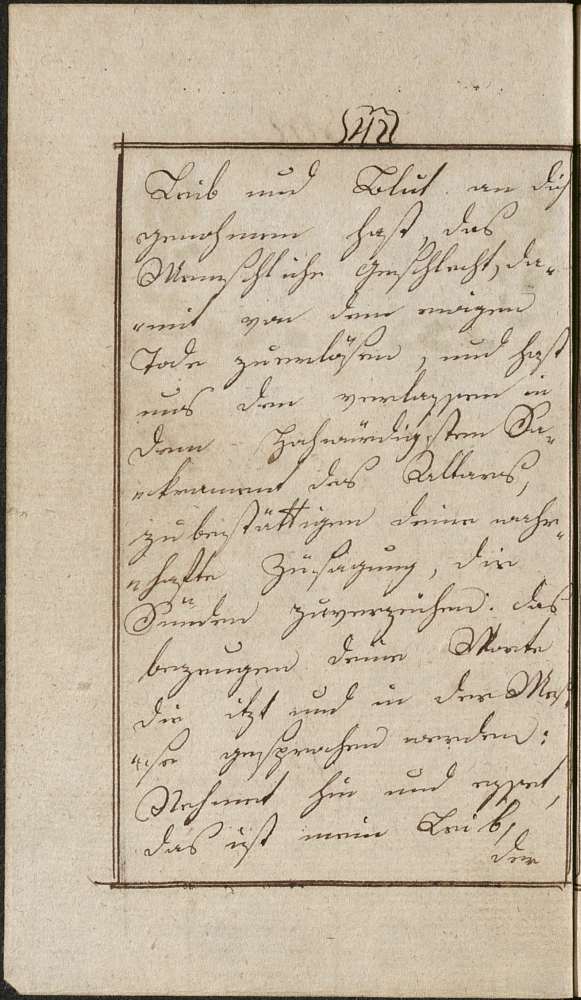 42
Leib und Blut an dich
genohmen hast, das
Menschliche Geschlecht, da-
"mit von dem ewigen
Tode zuerlösen, und hast
uns den verlassen in
dem Hochwürdigsten Sa-
"krament des Altars,
zu bestättigen deine wahr-
"hafte Zusagung, die
Sünden zuverzeihen. das
bezeugen deine Worte
die itzt und in der Mes-
"se gesprochen werden:
Nehmet hin und esset,
das ist mein Leib,
der